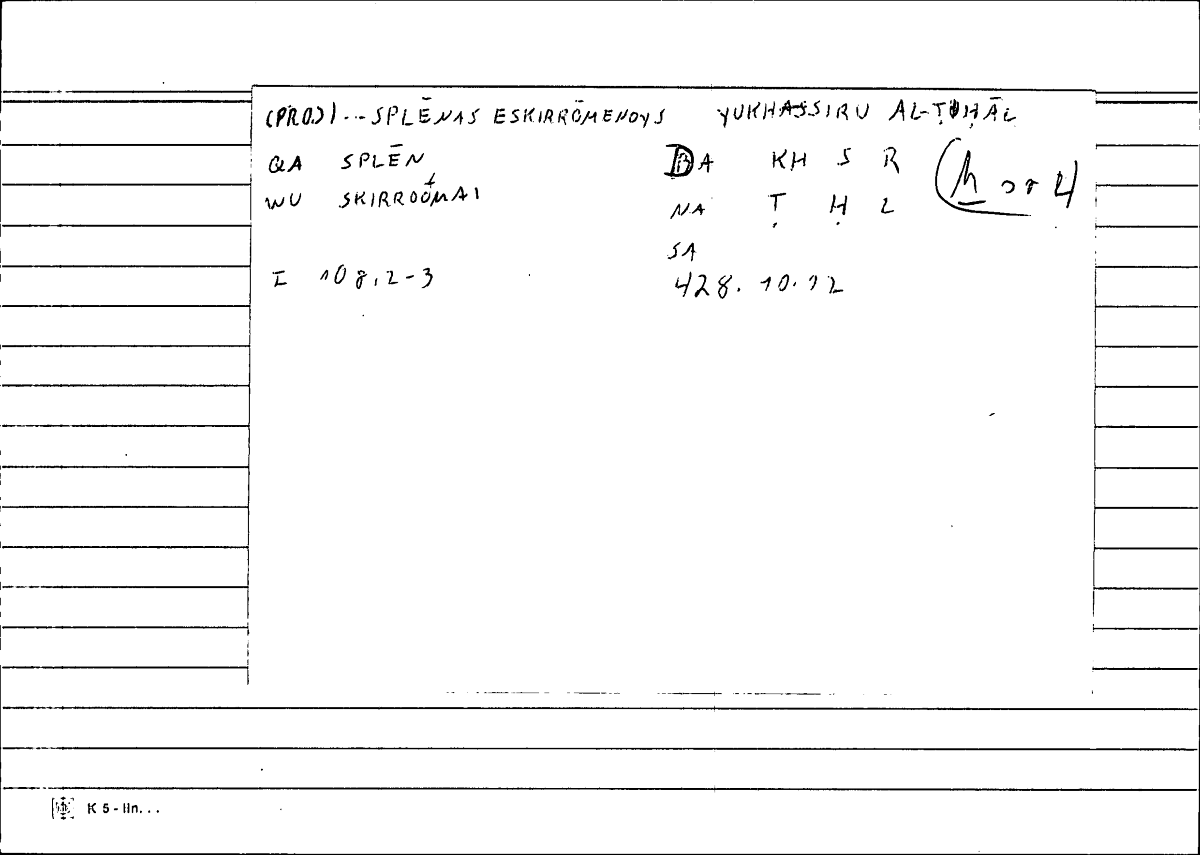 (PRO.) ... SPLĒNAS ESKIRRŌMENOYS YUKHASSIRU AL-ṬUḤĀL
QA SPLĒN BA KH S R
WU SKIRROOMAI NA Ṭ Ḥ L
SA
I 108,2-3 428.10.12
K 5 - lin...